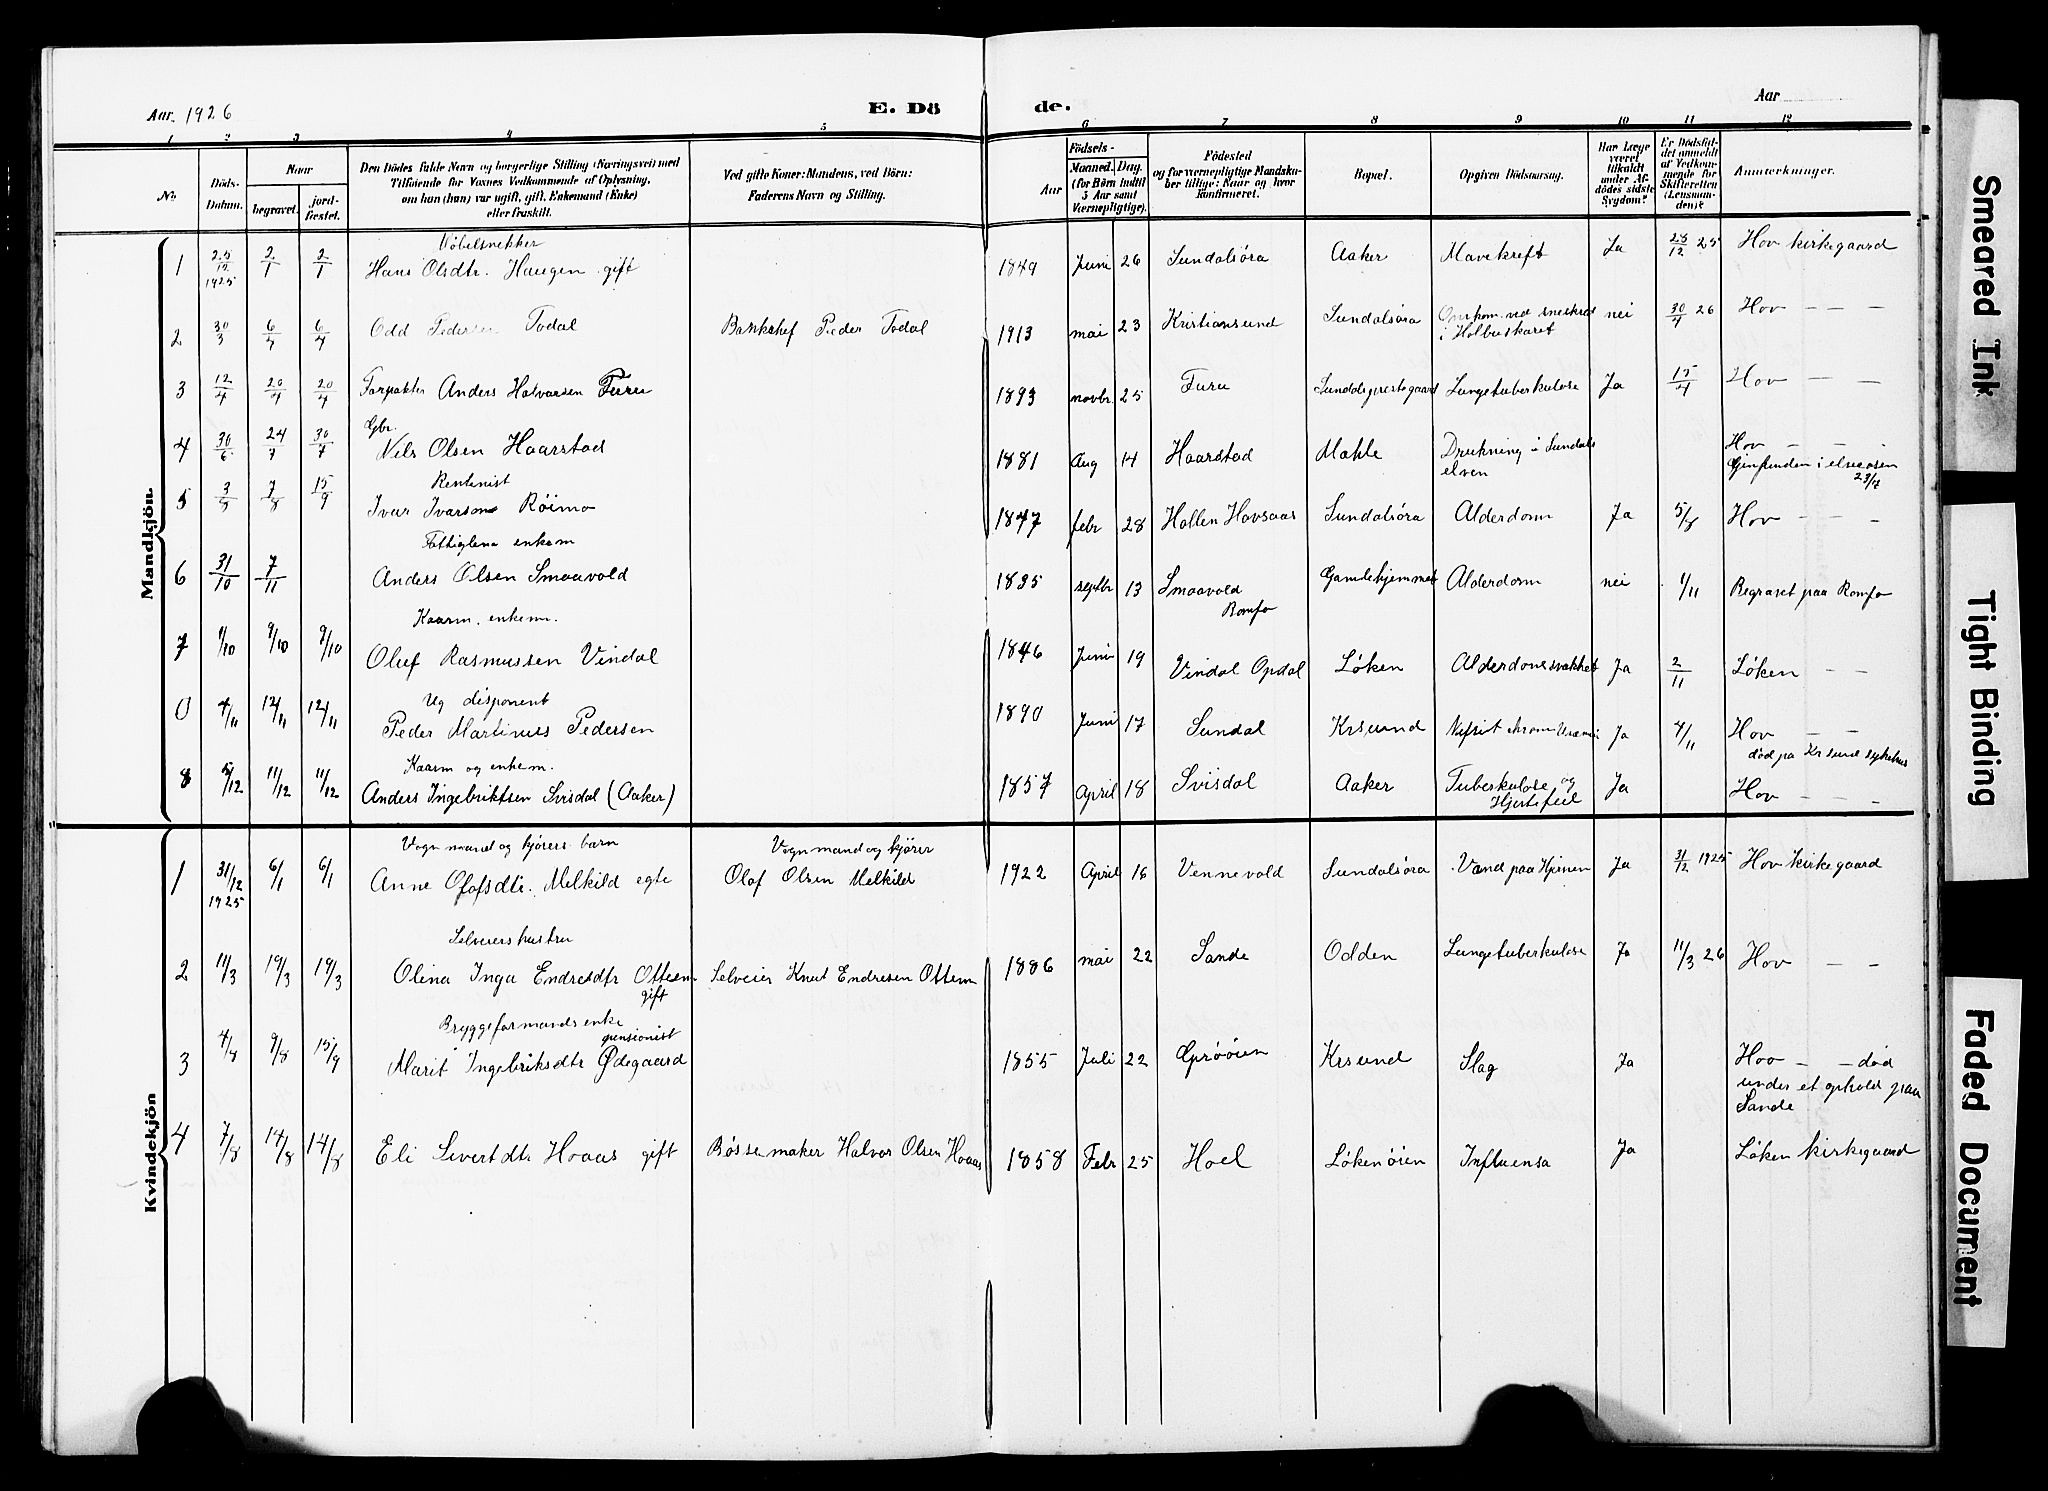 Aar 1926
E. Dö
de.
Aar
1 2 3 4 5 6 7 8 9 10 11 12
No. Döds-Datum. Naar begravet. jord-fæstet.
Den Dödes fulde Navn og borgerlige Stilling (Næringsvei) med
Tilföiende for Voxnes Vedkommende af Oplysning,
om han (hun) var ugift, gift, Enkemand (Enke)
eller fraskilt.
Ved gifte Koner: Mandens, ved Börn:
Faderens Navn og Stilling.
Födsels-
Aar Maaned. Dag.
(for Börn indtil
5 Aar samt
Værnepligtige).
Födested
og for værnepligtige Mandskaber tillige: Naar og hvor
konfirmeret.
Bopæl.
Opgiven Dödsaarsag.
Har Læge
været
tilkaldt
under Afdödes sidste
Sygdom?
Er Dödsfaldet anmeldt
af Vedkommende for
Skifteretten
(Lensmanden)?
Anmærkninger.
Mandkjön.
Møbelsnekker
1 25/12 1925 2/1 2/1 Hans Olsdtr. Haugen gift 1849 Juni 26 Sundalsøra Aaker Mavekreft Ja 28/12 25 Hov kirkegaard
2 30/3 6/4 6/4 Odd Pedersen Todal Bankchef Peder Todal 1913 mai 23 Kristiansund Sundalsøra Omkom. ved sneskred nei 30/4 26 Hov — —
i Holbuskaret
3 12/4 20/4 20/4 Forpakter Anders Halvarsen Furu 1893 novbr. 25 Furu Sundalsprestegaard Lungetuberkulose Ja 15/4 Hov — —
Gbr.
4 30/6 24/7 30/7 Nils Olsen Haarstad 1881 Aug 14 Haarstad Mahle Drukning i Sundals Hov — — -
elven Gjenfunden i elveosen
23/7
Rentenist
5 3/8 7/8 15/9 Ivar Ivarson Røimo 1847 febr 28 Hollen Hovsaas Sundalsøra Alderdom Ja 5/8 Hov — —
Fattiglem enkem
6 31/10 7/11 Anders Olsen Smaavold 1835 septbr 13 Smaavold Gamlehjemmet Alderdom nei 1/11 Begravet paa Romfo
Romfo
Kaarm. enkem.
7 1/10 9/10 9/10 Oluf Rasmussen Vindal 1846 Juni 19 Vindal Opdal Løken Alderdomssvakhet Ja 2/11 Løken — —
Ug disponent
0 4/11 12/11 12/11 Peder Martinus Pedersen 1890 Juni 17 Sundal Krsund Nefrit chron Uræmi Ja 4/11 Hov — —
død pa Kr sund sykehus
Kaarm og enkem.
8 5/12 11/12 11/12 Anders Ingebriktsen Svisdal (Aaker) 1857 April 18 Svisdal Aaker Tuberkulose og Ja Hov — — —
Hjertefeil
Kvindekjön
Vogn mand og kjørers barn Vognmand og kjører
1 31/12 1925 6/1 6/1 Anne Olofsdtr. Melkild egte Olaf Olsen Melkild 1922 April 16 Vennevold Sundalsøra Vand paa Hjernen Ja 31/12 1925 Hov kirkegaard
Selveiers hustru
2 11/3 19/3 19/3 Olina Inga Endresdtr Ottem Selveier Knut Endresen Ottem 1886 mai 22 Sande Odden Lungetuberkulose Ja 11/3 26 Hov — —
gift
Bryggeformands enke
pensionist
3 4/8 9/8 15/9 Marit Ingebriksdtr Ødegaard 1855 Juli 22 Grøøien Krsund Slag Ja Hov — — død
under et ophold paa
Sande
4 7/8 14/8 14/8 Eli Sivertdtr Hoaas gift Bøssemaker Halvor Olsen Hoaas 1858 Febr 25 Hoel Løkenøien Influensa Ja Løken kirkegaard
Smeared Ink
Tight Binding
Faded Document